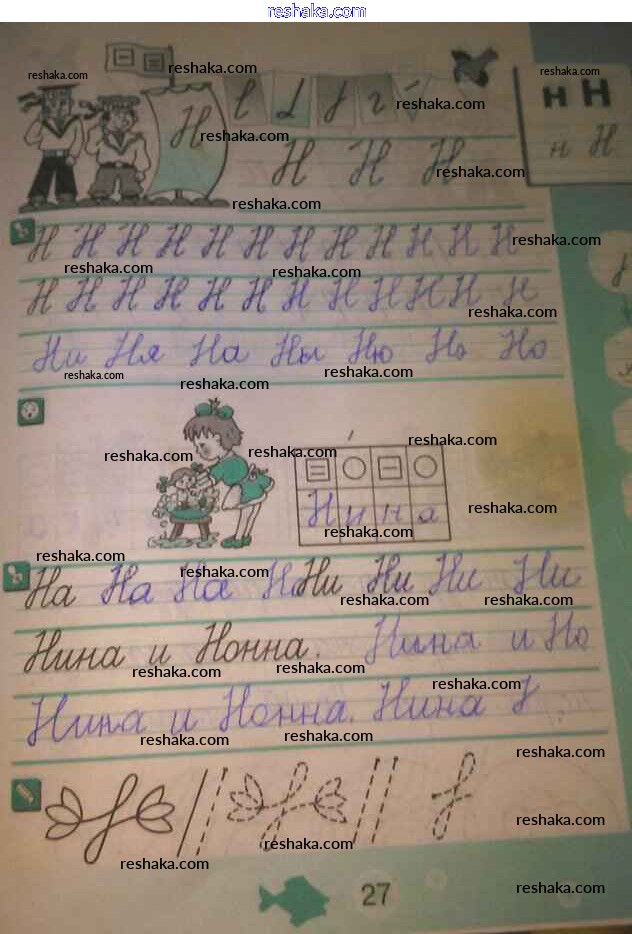 reshaka.com
Н
н Н
н Н
Н Н Н
Н Н Н Н Н Н Н Н Н Н Н Н
Н Н Н Н Н Н Н Н Н Н Н Н
Ни Ня На Ны Ню Но Но
Нина
На На На На Ни Ни Ни Ни
Нина и Нонна. Нина и Но
Нина и Нонна. Нина
27